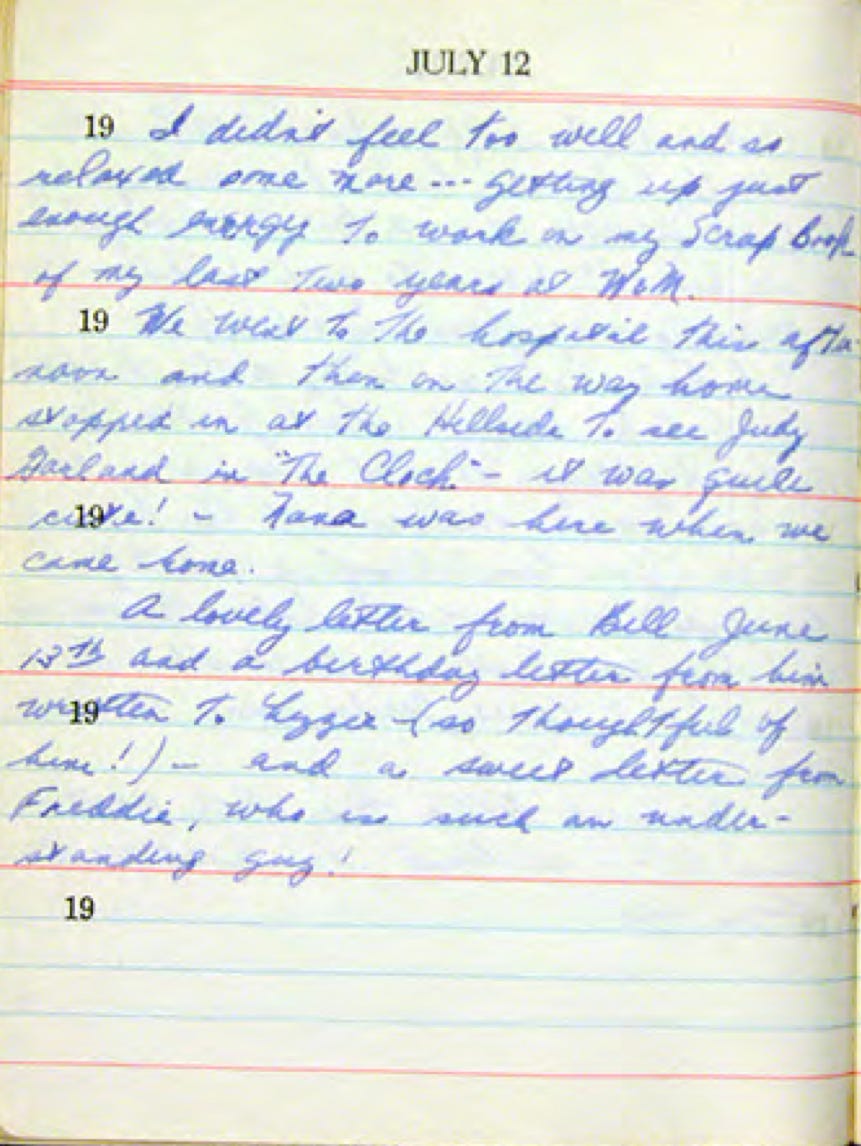 JULY 12
19 I didn't feel too well and so
relaxed some more --- getting up just
enough energy to work on my Scrap Book
of my last two years at W&M.
19 We went to the hospital this after-
noon and then on the way home
stopped in at the Hillside to see Judy
Garland in "The Clock" - it was quite
19 cute! - Nana was here when we
came home.
A lovely letter from Bill June
13th and a birthday letter from him
19 written to Lizzie - (so thoughtful of
him!) - and a sweet letter from
Freddie, who is such an under-
standing guy!
19